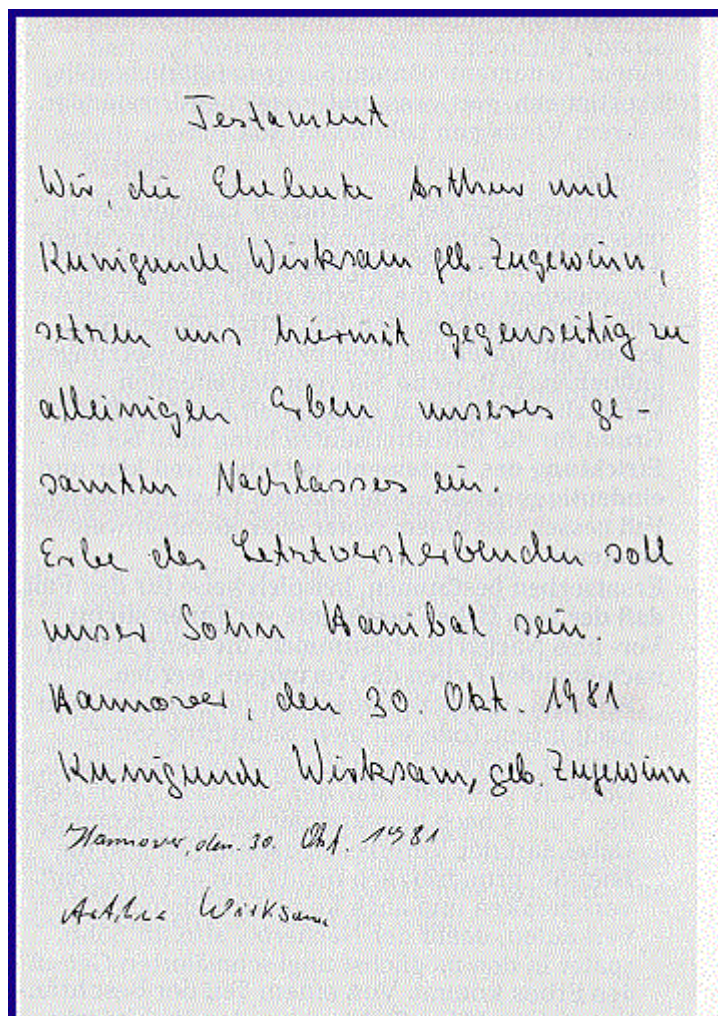 Testament
Wir, die Eheleute Arthur und
Kunigunde Wirksam geb. Zugewinn,
setzen uns hiermit gegenseitig zu
alleinigen Erben unseres ge-
samten Nachlasses ein.
Erbe des Letztversterbenden soll
unser Sohn Hanibal sein.
Hannover, den 30. Okt. 1981
Kunigunde Wirksam, geb. Zugewinn
Hannover, den. 30. Okt. 1981
Arthur Wirksam